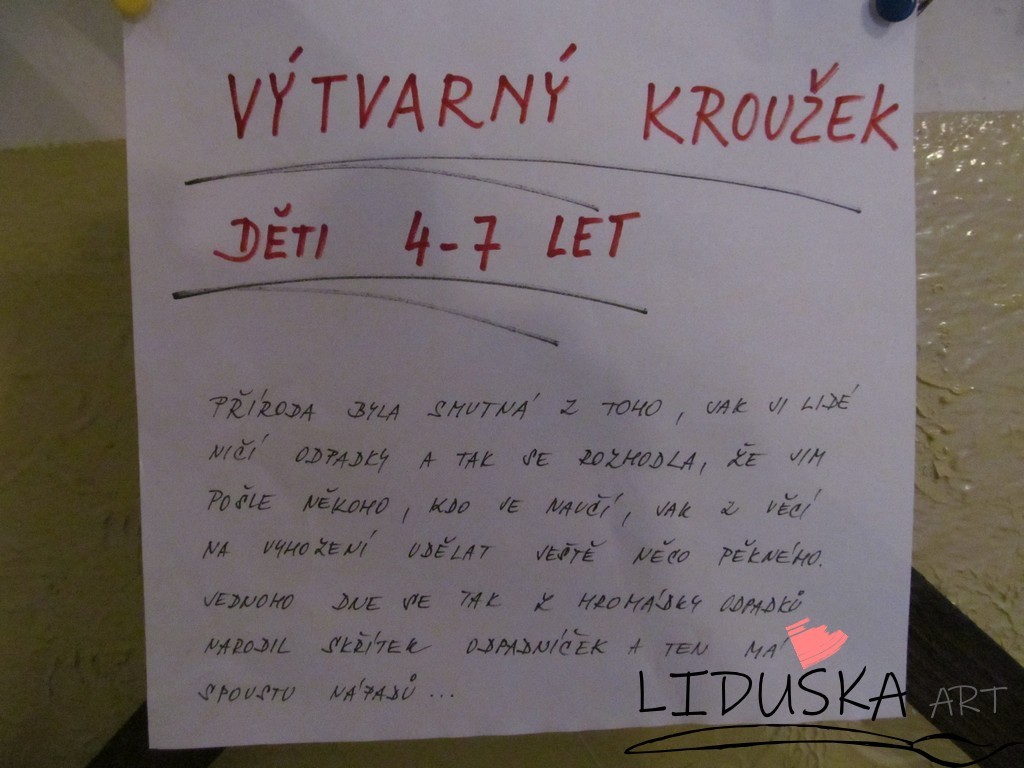 VÝTVARNÝ KROUŽEK
DĚTI 4-7 LET
PŘÍRODA BYLA SMUTNÁ Z TOHO, JAK JI LIDÉ
NIČÍ ODPADKY A TAK SE ROZHODLA, ŽE JIM
POŠLE NĚKOHO, KDO JE NAUČÍ, JAK Z VĚCÍ
NA VYHOZENÍ UDĚLAT JEŠTĚ NĚCO PĚKNÉHO.
JEDNOHO DNE SE TAK Z HROMÁDKY ODPADKŮ
NARODIL SKŘÍTEK ODPADNÍČEK A TEN MÁ
SPOUSTU NÁPADŮ...
LIDUSKA ART